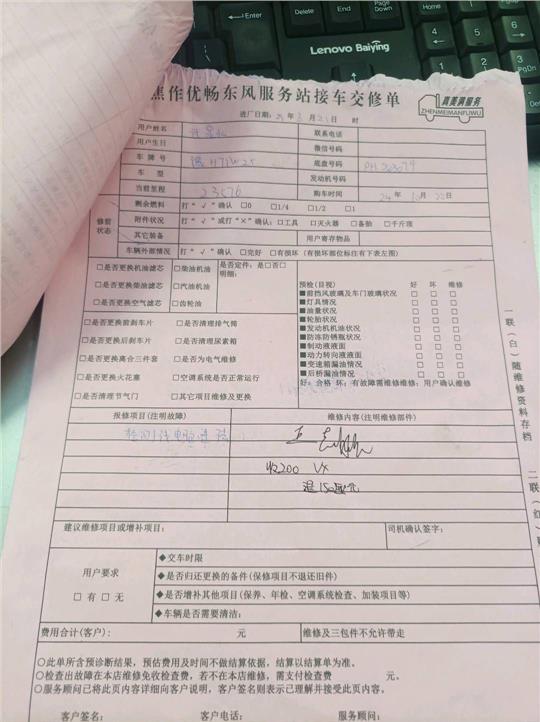 Home
End
PgDn
Lenovo Baiying
焦作优畅东风服务站接车交修单
真美满服务
ZHENMEIMANFUWU
进厂日期: 年 月 日 时
用户姓名
联系电话
用户生日
微信号码
车牌号
底盘号码
车型
发动机号码
当前里程 23576
购车时间 24年10月 日
修前状态
剩余燃料 打“√”确认 □0 □1/4 □1/2 □1
附件状况 打“√”或打“×”确认:□工具 □灭火器 □备胎 □千斤顶
其它装备
用户寄存物品
车辆外部情况 打“√”确认 □完好 □有损坏(有损坏部位标注右下表左图)
□是否更换机油滤芯 □柴油机油
□是否更换柴油滤芯 □汽油机油
□是否更换空气滤芯 □齿轮油
是否定件:是□否□
明细:
□是否更换前刹车片 □是否清理排气筒
□是否更换后刹车片 □是否清理尿素箱
□是否更换离合三件套 □是否为电气维修
□是否更换火花塞 □空调系统是否正常运行
□是否清理节气门 □其它项目维修及更换
预检(目视) 好 坏 维修
■前挡风玻璃及车门玻璃状况 □ □ □
■灯具情况 □ □ □
■油量状况 □ □ □
■轮胎状况 □ □ □
■发动机机油状况 □ □ □
■防冻防锈瓶状况 □ □ □
■制动液液面 □ □ □
■动力转向液液面 □ □ □
■变速箱漏油情况 □ □ □
■后桥漏油情况 □ □ □
好:合格 坏:有故障需维修维修:用户确认维修
报修项目(注明故障)
维修内容(注明维修部件)
4200 VX
退150元
建议维修项目或增补项目:
司机确认签字:
用户要求
□有 □无
◆交车时限
◆是否归还更换的备件(保修项目不退还旧件)
◆是否增补其他项目(保养、年检、空调系统检查、加装项目等)
◆车辆是否需要清洁:
费用合计(客户): 元
维修及三包件不允许带走
○此单所含预诊断结果,预估费用及时间不做结算依据,结算以结算单为准。
○检查出故障在本店维修免收检查费,若不在本店维修,需支付检查费 元。
○服务顾问已将此页内容详细向客户说明,客户签名则表示已理解并接受此页内容。
客户签名: 客户电话: 服务顾问:
一联(白)随维修资料存档
二联(红)